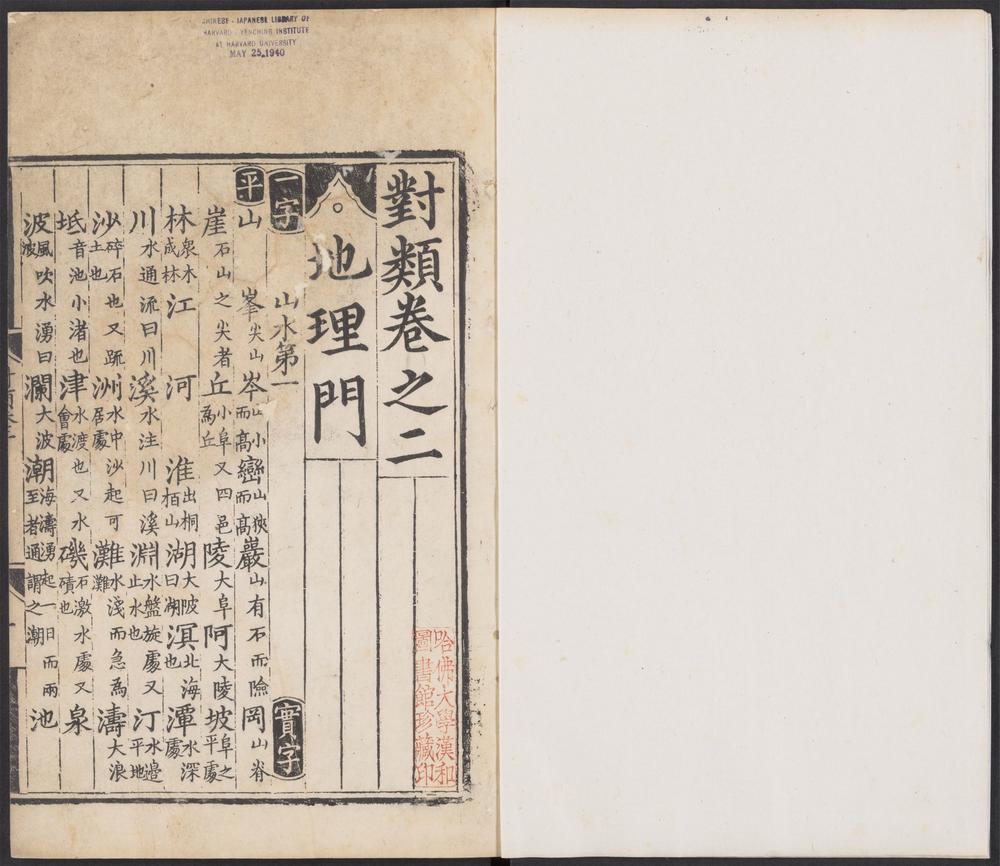 CHINESE - JAPANESE LIBRARY OF
HARVARD - YENCHING INSTITUTE
AT HARVARD UNIVERSITY
MAY 25 1940
對類卷之二
哈佛大學漢和
圖書館珍藏印
地理門
一字 山水第一 實字
平 山 峯尖山 岑山小而高 巒山狹而高 巖山有石而險 岡山脊
崖石山之尖者 丘小阜又四邑為丘 陵大阜 阿大陵 坡阜之平處
林泉木成林 江 河 淮出桐栢山 湖大陂曰湖 溟北海也 潭水深處
川水通流曰川 溪水注川曰溪 淵水盤旋處又止水也 汀水邊平地
沙碎石也又䟽土也 洲水中沙起可居處 灘水淺而急為灘 濤大浪
坻音池小渚也 津水渡也又水會處 磯石激水處又磧也 泉
波風吹水湧曰波 瀾大波 潮海濤湧起一日而兩至者通謂之潮 池